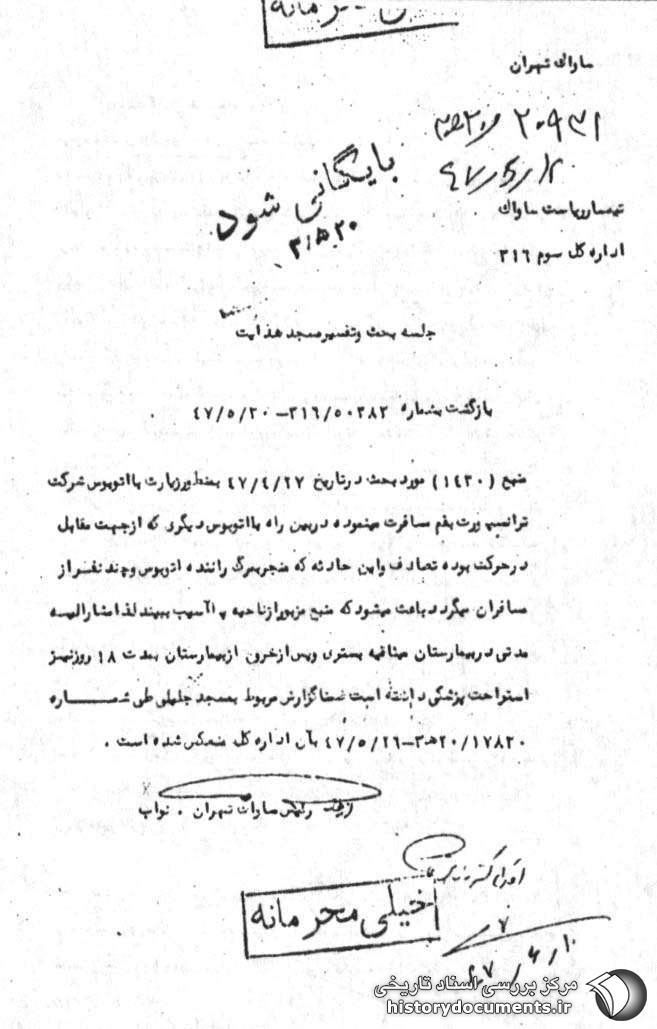 خیلی محرمانه
ساواك تهران
۲۰۹۳۱ / ۲۰ ه ۳
۴۷/۵/۱۲
بایگانی شود
۲۰ ه ۳
تیمسار ریاست ساواك
اداره کل سوم ۳۱۶
جلسه بحث و تفسیر مسجد هدایت
بازگشت بشماره ۳۱۶/۵۰۳۸۲ - ۴۷/۵/۲۰ .
منبع (۱۴۳۰) مورد بحث در تاریخ ۴۷/۴/۲۷ بمنظور زیارت با اتوبوس شرکت
ترانسپورت بقم مسافرت مینموده در بین راه با اتوبوس دیگری که از جهت مقابل
در حرکت بوده تصادف و این حادثه که منجر بمرگ راننده اتوبوس و چند نفر از
مسافران میگردد باعث میشود که منبع مزبور از ناحیه پا آسیب ببیند لذا مشارالیه
مدتی در بیمارستان میثاقیه بستری و پس از خروج از بیمارستان بمدت ۱۸ روز نیز
استراحت پزشکی داشته است ضمنا گزارش مربوط بمسجد جلیلی طی شماره
۱۷۸۲۰/ ۲۰ ه ۳ - ۴۷/۵/۲۶ بآن اداره کل منعکس شده است .
رئیس ساواك تهران . نواب
خیلی محرمانه
۷
۴۷/۶/۱۰
مرکز بررسی اسناد تاریخی
historydocuments.ir